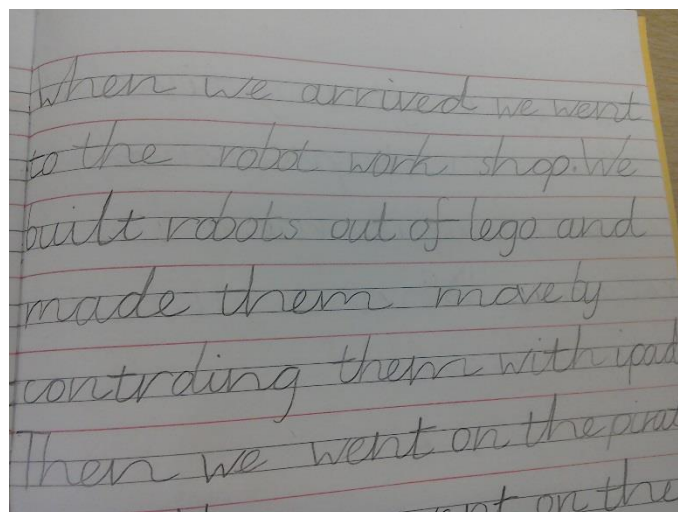 When we arrived we went
to the robot work shop. We
built robots out of lego and
made them move by
contrding them with ipad
Then we went on the pirat
on the